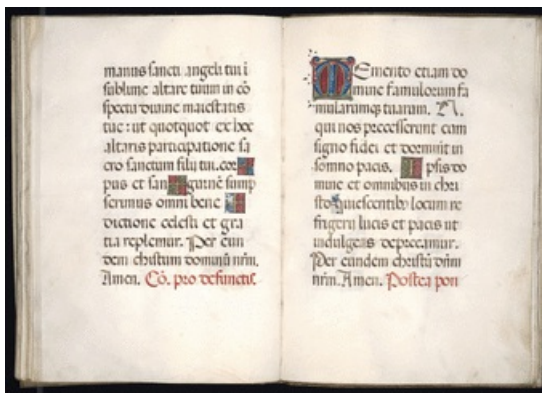 manus sancti angeli tui i
sublime altare tuum in cō
spectu divine maiestatis
tue: ut quotquot ex hoc
altaris participatione sa
cro sanctum filii tui. cor
pus et sanguinē sump
serimus omni bene
dictione celesti et gra
tia repleamur. Per eun
dem christum dominū nrm.
Amen. Cō. pro defunctis
Memento etiam do
mine famulorum fa
mularumq; tuarum. N.
qui nos precesserunt cum
signo fidei et dormiūt in
somno pacis. Ipsis do
mine et omnibus in chri
sto quiescentib; locum re
frigerii lucis et pacis ut
indulgeas deprecamur.
Per eundem christū dnm
nrm. Amen. Postea pon